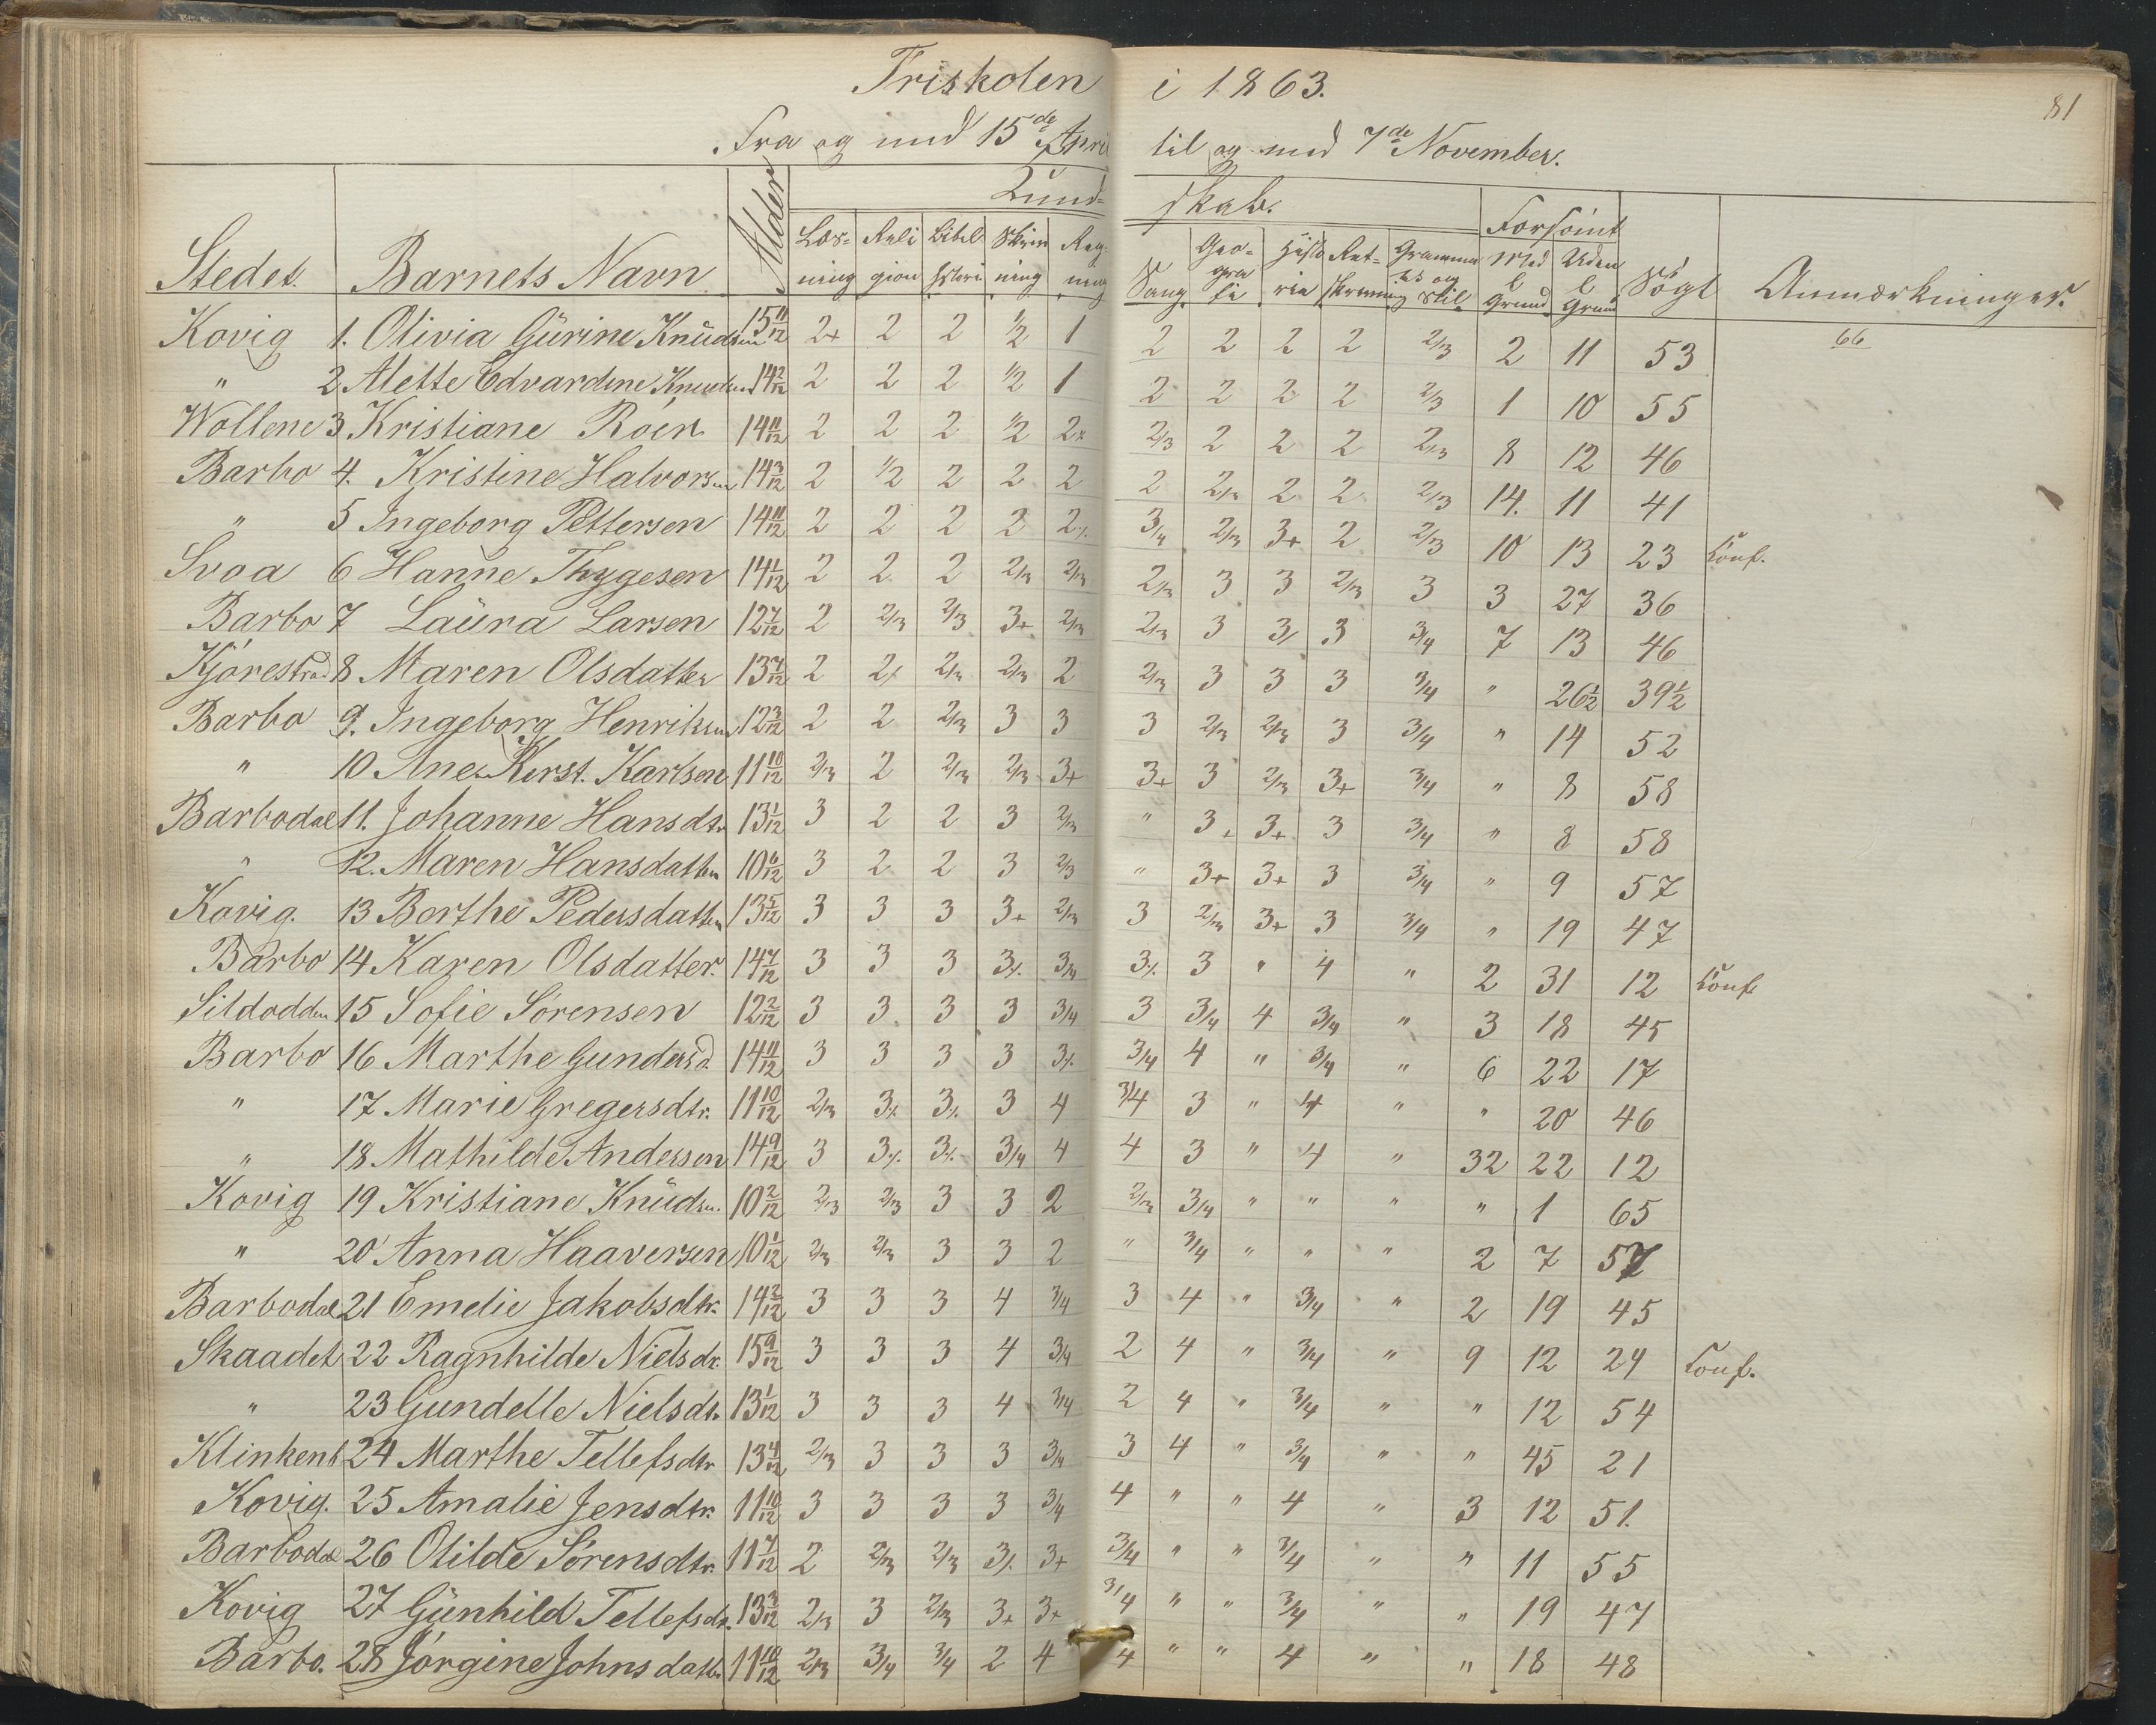 Friskolen i 1863.
81
Fra og med 15de April til og med 7de November.
Kund- skab. Forsömt
Stedet. Barnets Navn Alder Læs- ning Reli gion Bibel histori Skriv ning Reg- ning Sang Geo- gra fi Histo rie Ret- skrivning Gramma tik og Stil Med Grund Uden Grund Sögt Anmærkninger.
Kovig 1. Olivia Gürine Knudsen 15 11/12 2+ 2 2 1/2 1 2 2 2 2 2/3 2 11 53 66
" 2 Alette Edvardine Knudsen 14 2/12 2 2 2 1/2 1 2 2 2 2 2/3 1 10 55
Wollene 3 Kristiane Röer 14 11/12 2 2 2 1/2 2+ 2/3 2 2 2 2/3 8 12 46
Barbo 4. Kristine Halvorsen 14 3/12 2 1/2 2 2 2 2 2/3 2 2 2/3 14. 11 41
" 5 Ingeborg Pettersen 14 11/12 2 2 2 2 2% 3/4 2/3 3+ 2 2/3 10 13 23 Conf.
Svaa 6 Hanne Thygesen 14 1/12 2 2 2 2/3 2/3 2/3 3 3 2/3 3 3 27 36
Barbo 7 Laüra Larsen 12 7/12 2 2/3 2/3 3+ 2/3 2/3 3 3/ 3 3/4 7 13 46
Kjörestad 8 Maren Olsdatter 13 7/12 2 2/ 2/3 2/3 2 2/3 3 3 3 3/4 " 26 1/2 39 1/2
Barbo 9. Ingeborg Henriksen 12 3/12 2 2 2/3 3 3 3 2/3 2/3 3 3/4 " 14 52
" 10 Ane Kirst. Karlsen 11 10/12 2/3 2 2/3 2/3 3+ 3+ 3 2/3 3+ 3/4 " 8 58
Barbodal 11. Johanne Hansdtr 13 1/12 3 2 2 3 2/3 " 3+ 3+ 3 3/4 " 8 58
" 12. Maren Hansdatter 10 6/12 3 2 2 3 2/3 " 3+ 3+ 3 3/4 " 9 57
Kovig. 13 Berthe Pedersdatter 13 5/12 3 3 3 3+ 2/3 3 2/3 3+ 3 3/4 " 19 47
Barbo 14 Karen Olsdatter. 14 7/12 3 3 3 3% 3/4 3% 3 " 4 " 2 31 12 Conf.
Sildodden 15 Sofie Sörensen 12 2/12 3 3 3 3 3/4 3 3/4 4 3/4 " 3 18 45
Barbo 16 Marthe Gundersd. 14 11/12 3 3 3 3 3% 3/4 4 " 3/4 " 6 22 17
" 17 Marie Gregersdtr. 11 10/12 2/3 3% 3% 3 4 3/4 3 " 4 " " 20 46
" 18 Mathilde Andersen 14 9/12 3 3% 3% 3/4 4 4 3 " 4 " 32 22 12
Kovig 19 Kristiane Knüdsen. 10 2/12 2/3 2/3 3 3 2 2/3 3/4 " " " " 1 65
" 20 Anna Haaversen 10 1/12 2/3 2/3 3 3 2 " 3/4 " " " 2 7 57
Barbodal 21 Emelie Jakobsdtr. 14 2/12 3 3 3 4 3/4 3 4 " 3/4 " 2 19 45
Skaadet 22 Ragnhilde Nielsdr. 15 9/12 3 3 3 4 3/4 2 4 " 3/4 " 9 12 24 Conf.
" 23 Gundelle Nielsdtr. 13 1/12 3 3 3 4 3/4 2 4 " 3/4 " " 12 54
Klinkenb 24 Marthe Tellefsdtr 13 4/12 2/3 3 3 3 3/4 3 4 " 3/4 " " 45 21
Kovig. 25 Amalie Jensdtr. 11 10/12 3 3 3 3 3/4 4 " " 4 " 3 12 51.
Barbodal 26 Olilde Sörensdtr. 11 7/12 2 2/3 2/3 3% 3+ 3/4 " " 3/4 " " 11 55
Kovig 27 Günhild Tellefsdtr. 13 3/12 2/3 3 2/3 3+ 3+ 3/4 " " 3/4 " " 19 47
Barbo. 28 Jörgine Johnsdatter 11 10/12 2/3 3/4 3/4 2 4 4 " " 4 " " 18 48